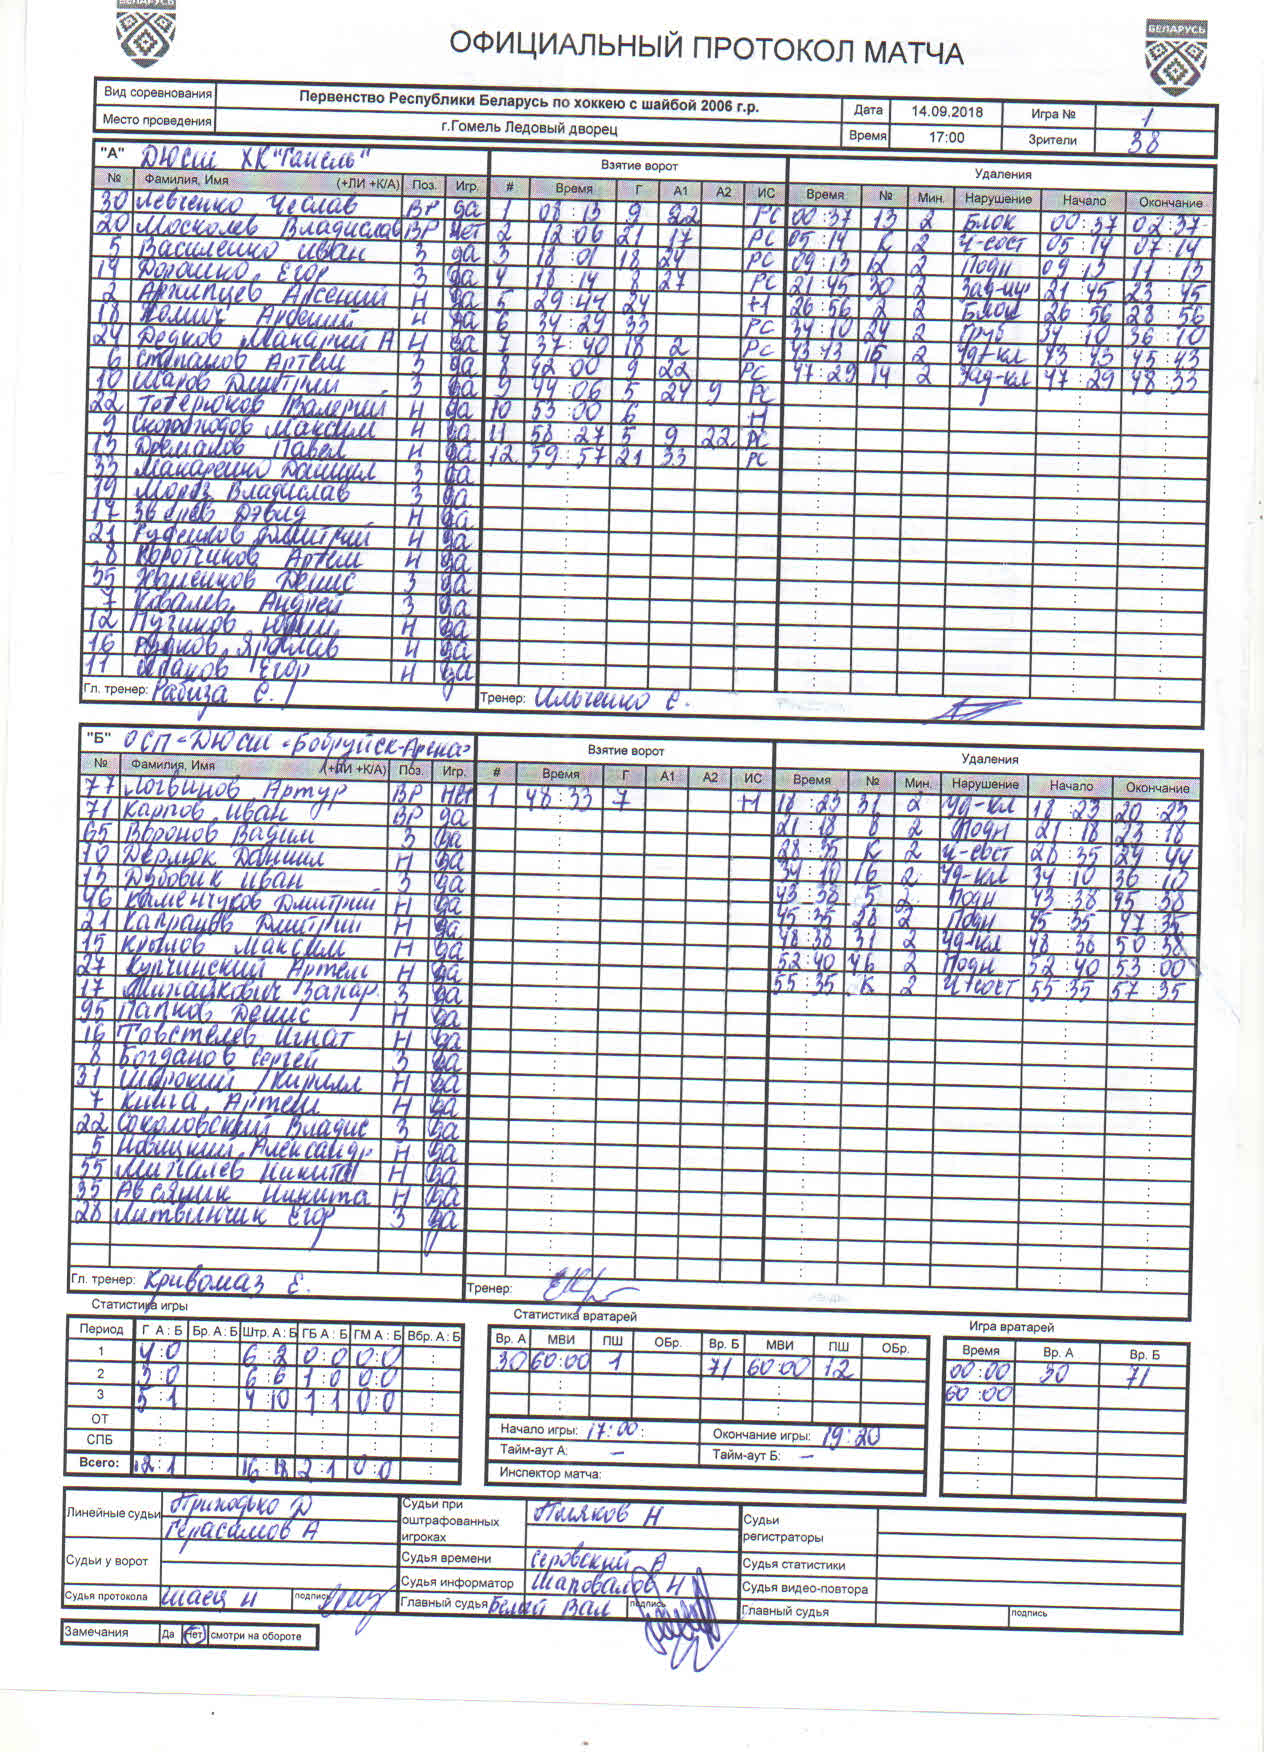 БЕЛАРУСЬ
БЕЛАРУСЬ
ОФИЦИАЛЬНЫЙ ПРОТОКОЛ МАТЧА
Вид соревнования Первенство Республики Беларусь по хоккею с шайбой 2006 г.р. Дата 14.09.2018 Игра № 1
Место проведения г.Гомель Ледовый дворец Время 17:00 Зрители 38
"А" ДЮСШ ХК "Гомель" Взятие ворот Удаления
№ Фамилия, Имя (+ЛИ +К/А) Поз. Игр. # Время Г А1 А2 ИС Время № Мин. Нарушение Начало Окончание
30 Левченко Чеслав ВР да 1 08:13 9 22 РС 00:37 13 2 Блок 00:37 02:37
20 Москалев Владислав ВР нет 2 12:06 21 17 РС 05:14 К 2 Ч-сост 05:14 07:14
5 Василенко Иван З да 3 18:01 18 24 РС 09:13 12 2 Подн 09:13 11:13
19 Дорошко Егор З да 4 18:14 8 27 РС 21:45 30 2 21:45 23:45
2 Архипцев Арсений Н да 5 29:44 24 +1 26:56 2 2 Блок 26:56 28:56
18 Хомич Арсений Н да 6 34:29 33 РС 34:10 24 2 Груб 34:10 36:10
24 Дедков Макарий А Н да 7 37:40 18 2 РС 43:43 15 2 Уд-кл 43:43 45:43
6 Степанов Артем З да 8 42:00 9 22 РС 47:29 14 2 Зад-кл 47:29 48:33
10 Шаров Дмитрий З да 9 44:06 5 24 9 РС
22 Тетерюков Валерий Н да 10 53:00 6 Н
9 Скоробогатов Максим Н да 11 53:27 5 9 22 РС
13 Дреманов Павел Н да 12 59:57 21 33 РС
33 Макаренко Даниил З да
19 Мороз Владислав З да
17 Зверев Дэвид Н да
21 Руденков Дмитрий Н да
8 Коротчиков Артем Н да
35 Хоменков Денис З да
7 Ковалев Андрей З да
12 Пугачев Юрий Н да
16 Рудков Ярослав Н да
11 Егор Н да
Гл. тренер: Рабиза С. Тренер: Ильченко С.
"Б" ОСП "ДЮСШ "Бобруйск-Арена" Взятие ворот Удаления
№ Фамилия, Имя (+ЛИ +К/А) Поз. Игр. # Время Г А1 А2 ИС Время № Мин. Нарушение Начало Окончание
77 Логвинов Артур ВР нет 1 48:33 7 Н 18:23 31 2 Уд-кл 18:23 20:23
71 Карпов Иван ВР да 21:18 8 2 Подн 21:18 23:18
65 Воронов Вадим З да 28:35 К 2 Ч-сост 28:35 29:44
10 Дерлюк Даниил Н да 34:10 16 2 Уд-кл 34:10 36:10
13 Дубовик Иван З да 43:38 5 2 Подн 43:38 45:38
46 Каменчуков Дмитрий Н да 45:35 28 2 Подн 45:35 47:35
21 Капранов Дмитрий Н да 48:38 31 2 Уд-кл 48:38 50:38
15 Крылов Максим Н да 52:40 46 2 Подн 52:40 53:00
27 Купчинский Артем Н да 55:35 К 2 Ч-сост 55:35 57:35
17 Минайкович Захар З да
95 Папко Денис Н да
16 Товстелев Игнат Н да
8 Богданов Сергей З да
31 Широкий Кирилл Н да
7 Книга Артем Н да
22 Соколовский Владис З да
5 Новицкий Александр Н да
55 Михалев Никита Н да
35 Авсяник Никита Н да
28 Литвинчик Егор З да
Гл. тренер: Кривомаз Е. Тренер:
Статистика игры Статистика вратарей Игра вратарей
Период Г А : Б Бр. А : Б Штр. А : Б ГБ А : Б ГМ А : Б Вбр. А : Б Вр. А МВИ ПШ ОБр. Вр. Б МВИ ПШ ОБр. Время Вр. А Вр. Б
1 4:0 6:2 0:0 0:0 30 60:00 1 71 60:00 12 00:00 30 71
2 3:0 6:6 1:0 0:0 60:00
3 5:1 4:10 1:1 0:0
ОТ Начало игры: 17:00 Окончание игры: 19:20
СПБ Тайм-аут А: – Тайм-аут Б: –
Всего: 12:1 16:18 2:1 0:0 Инспектор матча:
Линейные судьи Приходько Д Судьи при оштрафованных игроках Поляков Н Судьи регистраторы
Герасимов А
Судьи у ворот Судья времени Серовский А Судья статистики
Судья информатор Шаповалов Н Судья видео-повтора
Судья протокола Шаец Н подпись Главный судья Белый Вал подпись Главный судья подпись
Замечания Да Нет смотри на обороте